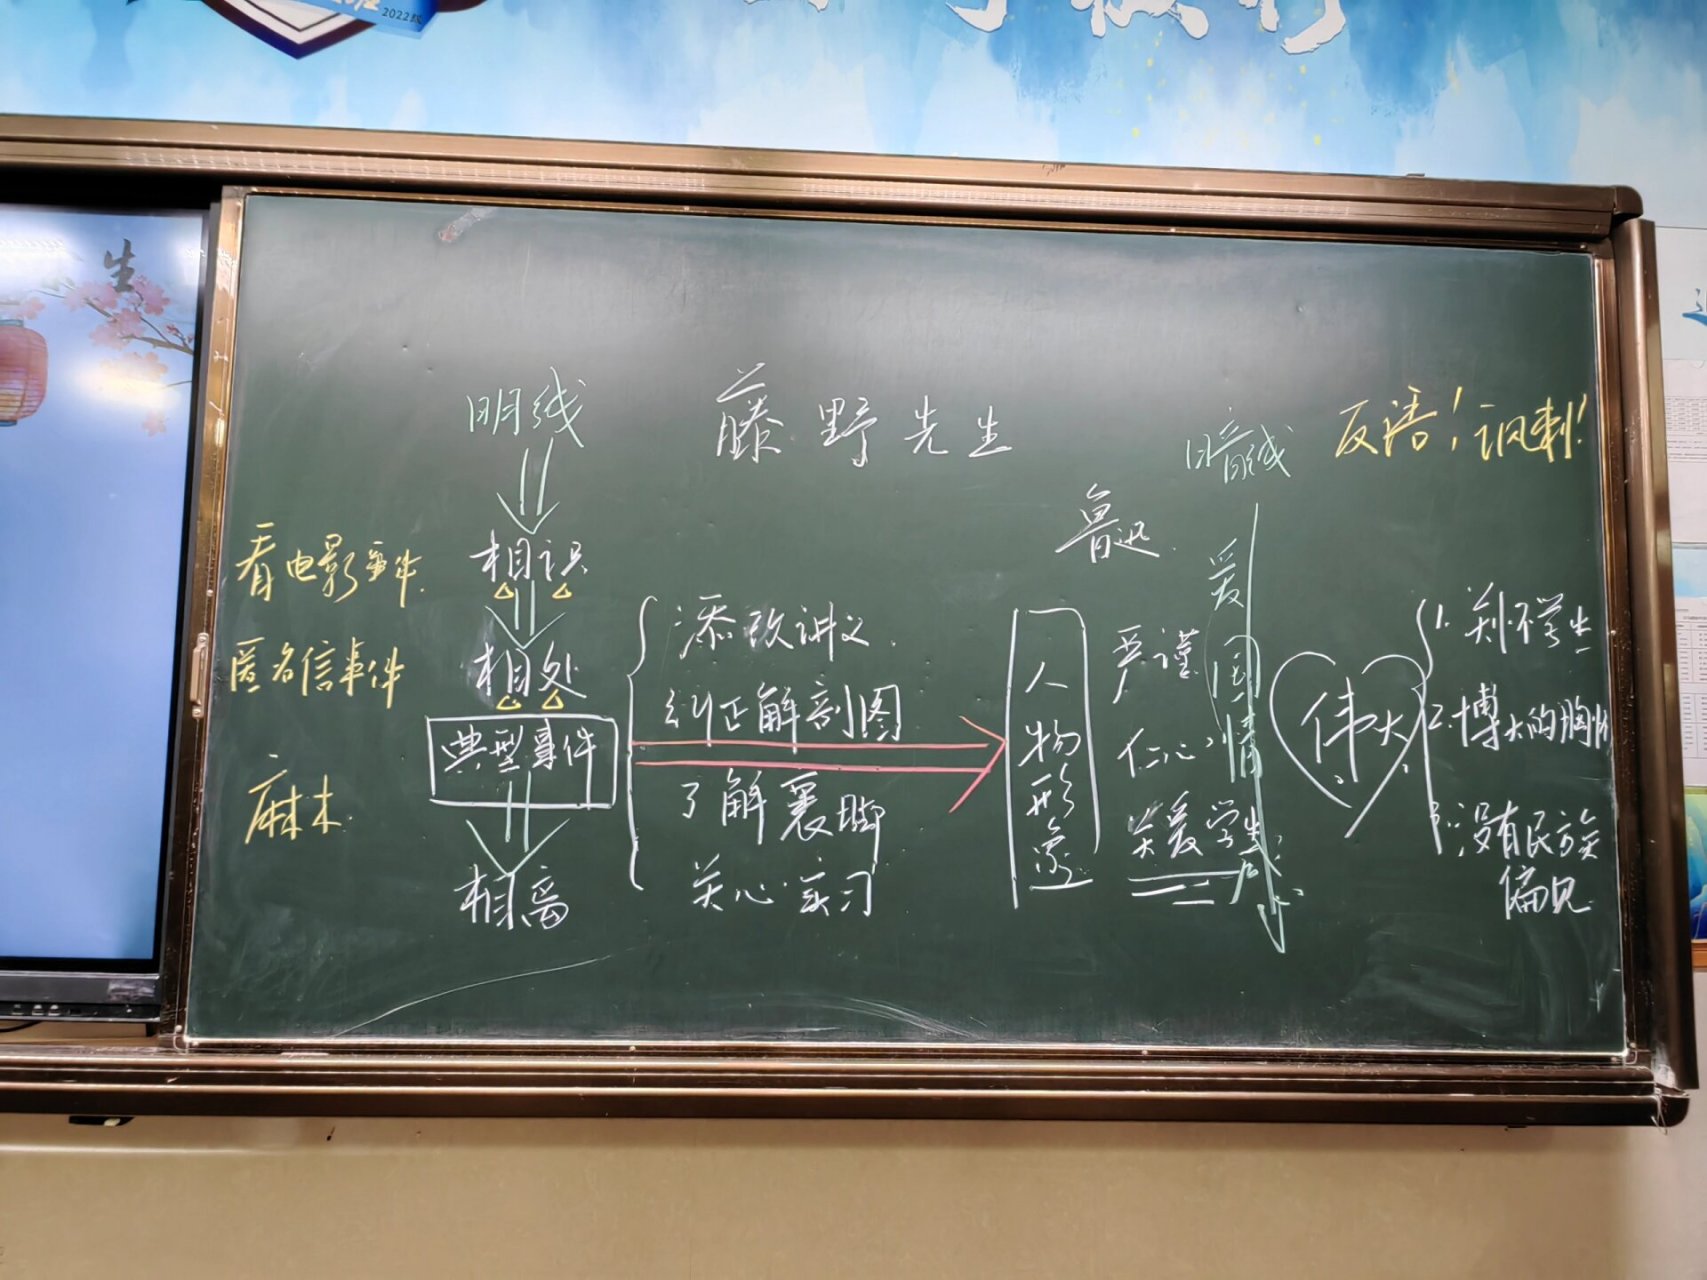 2022级
生
明线
藤野先生
暗线
反语！讽刺！
鲁迅
看电影事件
匿名信事件
麻木
相识
相处
典型事件
相离
添改讲义
纠正解剖图
了解裹脚
关心实习
人物形象
严谨
仁心
关爱学生
爱国情感
伟大
1.
2.博大的胸怀
3.没有民族
偏见